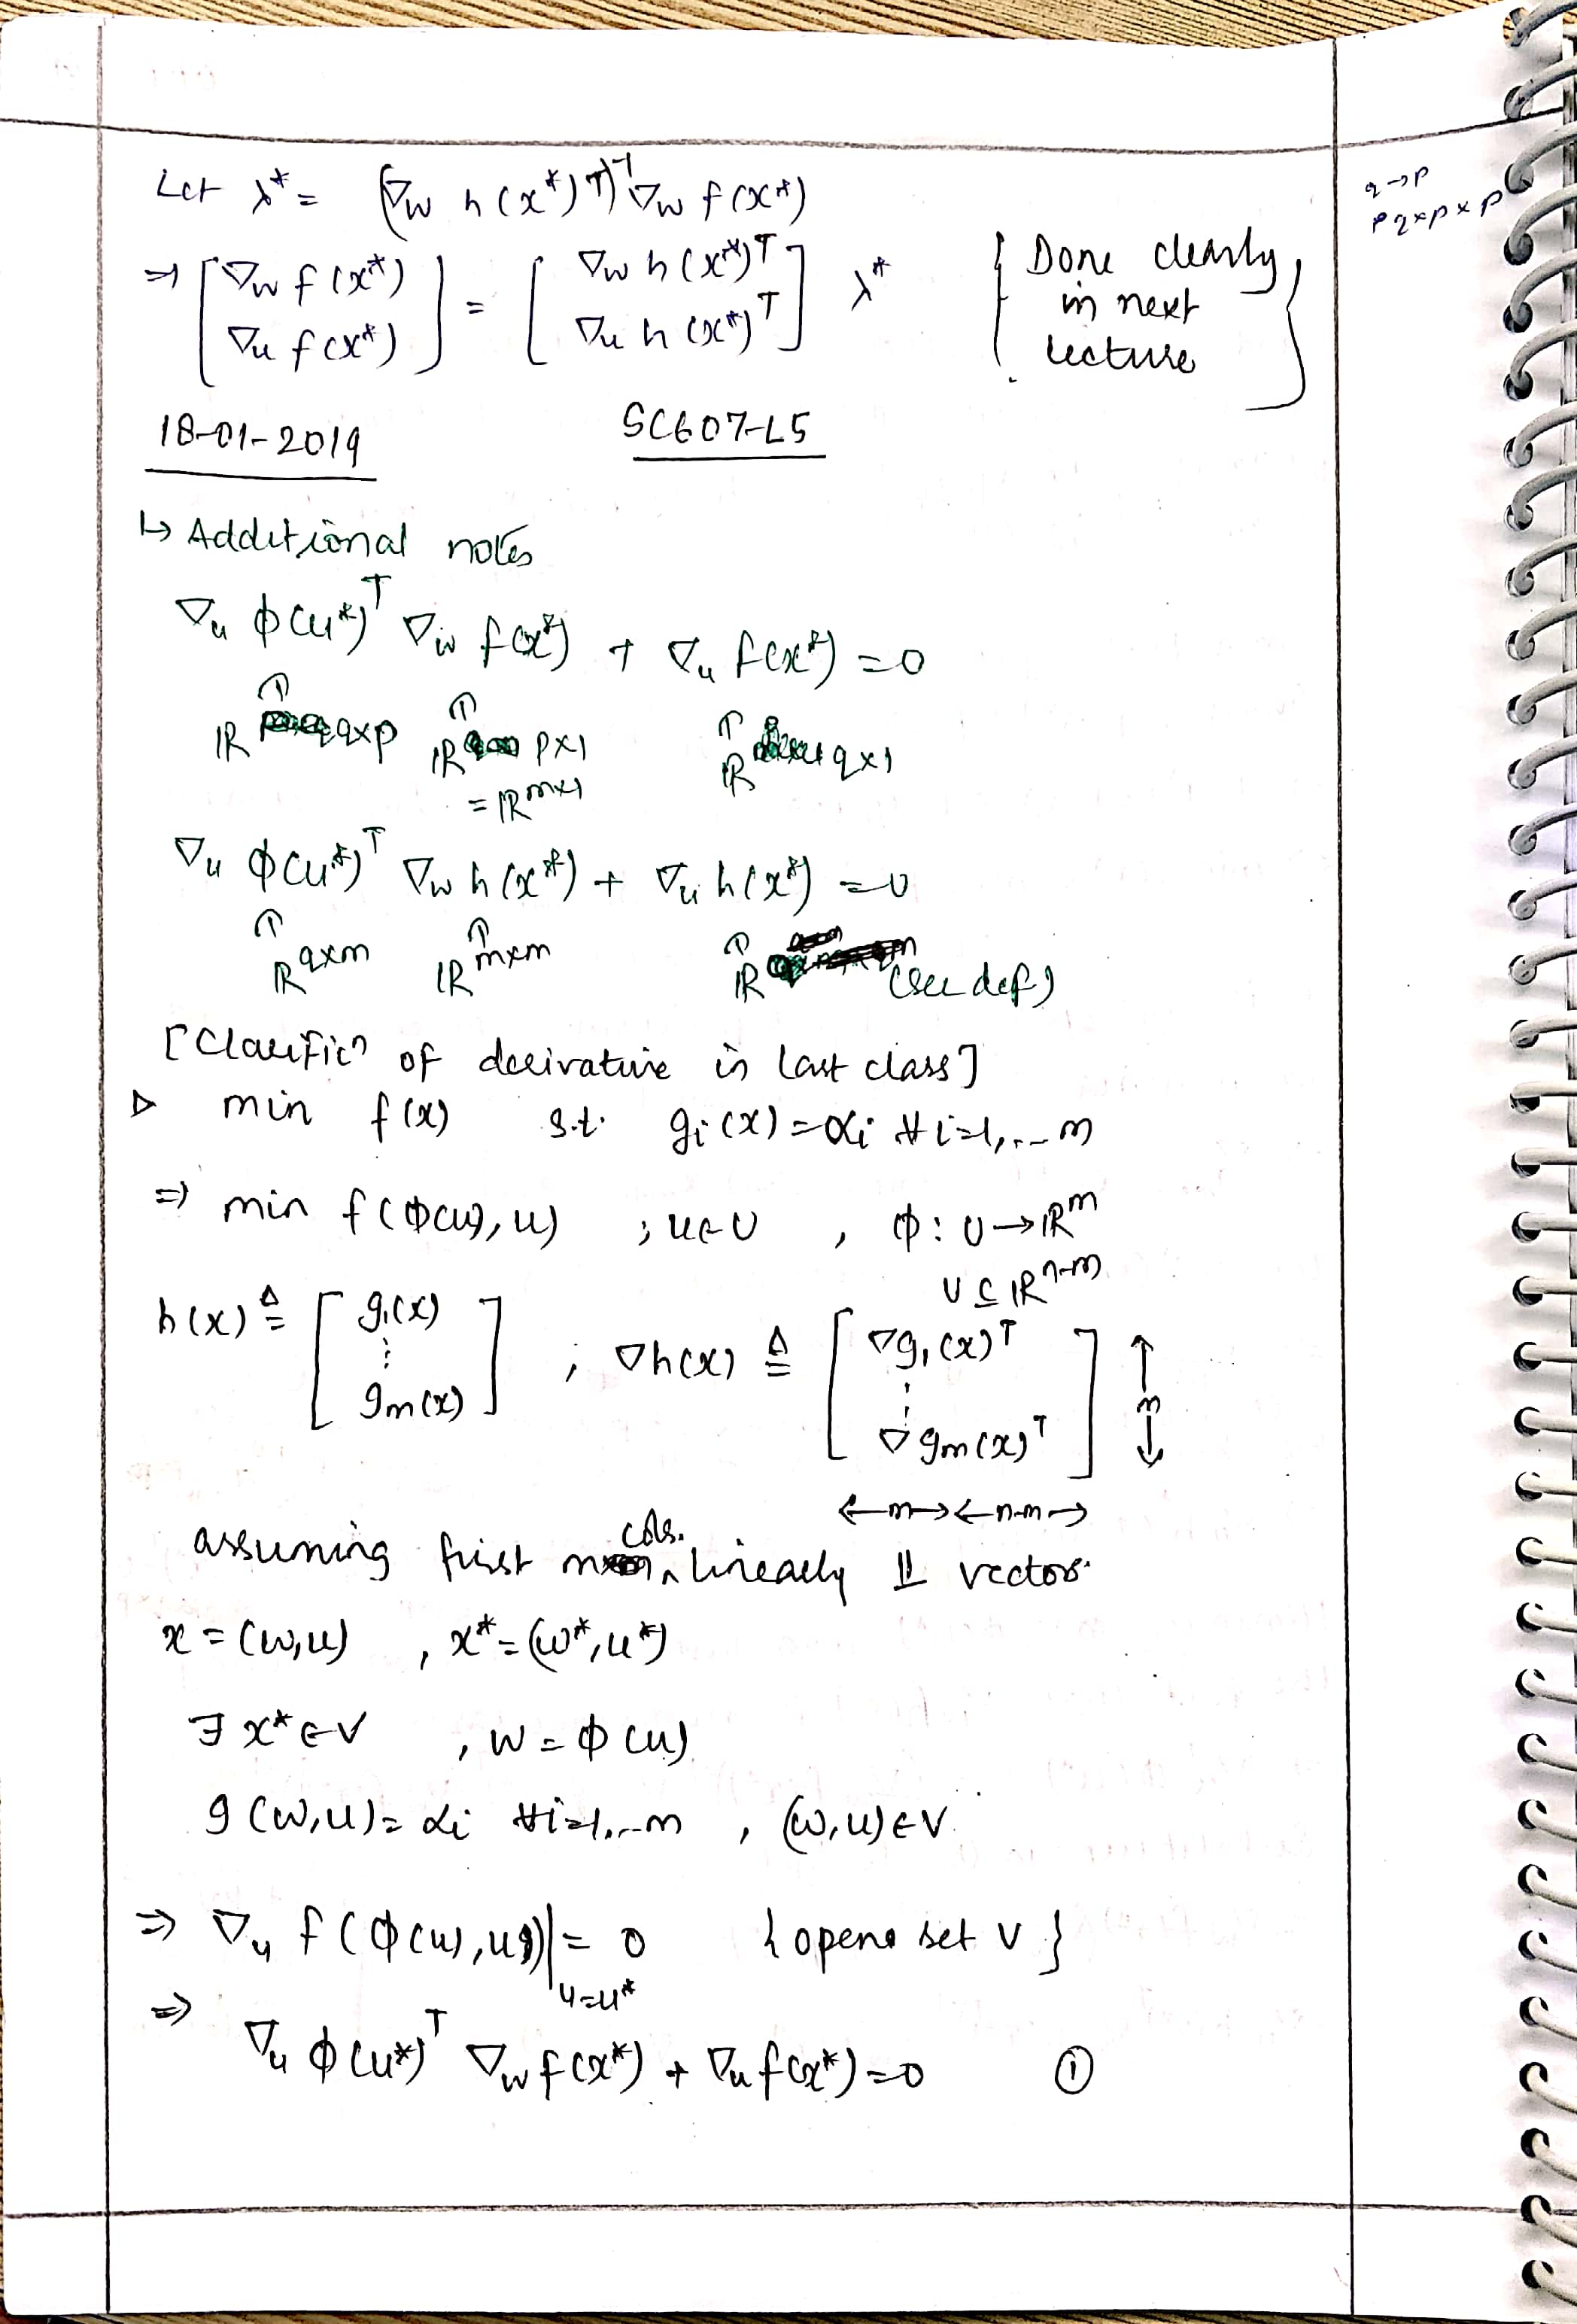 Let λ* = (∇w h(x*)ᵀ)⁻¹ ∇w f(x*)
q→p
q×p×p
⇒ [∇w f(x*) ; ∇u f(x*)] = [∇w h(x*)ᵀ ; ∇u h(x*)ᵀ] λ*
{ Done clearly, in next lecture }
18-01-2019 SC607-L5
↳ Additional notes
∇u ϕ(u*)ᵀ ∇w f(x*) + ∇u f(x*) = 0
↑ ↑ ↑
ℝ q×p ℝ p×1 ℝ q×1
= ℝ m×1
∇u ϕ(u*)ᵀ ∇w h(x*) + ∇u h(x*) = 0
↑ ↑ ↑
ℝ q×m ℝ m×m ℝ (see def)
[Clarificⁿ of derivative in last class]
▷ min f(x) s.t. gi(x) = αi ∀ i=1,...m
⇒ min f(ϕ(u), u) ; u∈U , ϕ: U→ℝᵐ
U ⊆ ℝⁿ⁻ᵐ
h(x) ≜ [g₁(x) ⋮ gm(x)] ; ∇h(x) ≜ [∇g₁(x)ᵀ ⋮ ∇gm(x)ᵀ] ↑ m ↓
←m→←n-m→
assuming first m cols. linearly ⫫ vectors.
x = (w,u) , x* = (w*,u*)
∃ x* ∈ V , w = ϕ(u)
g(w,u) = αi ∀i=1,..m , (w,u)∈V
⇒ ∇u f(ϕ(u),u)|u=u* = 0 {open set V}
⇒ ∇u ϕ(u*)ᵀ ∇w f(x*) + ∇u f(x*) = 0 ①